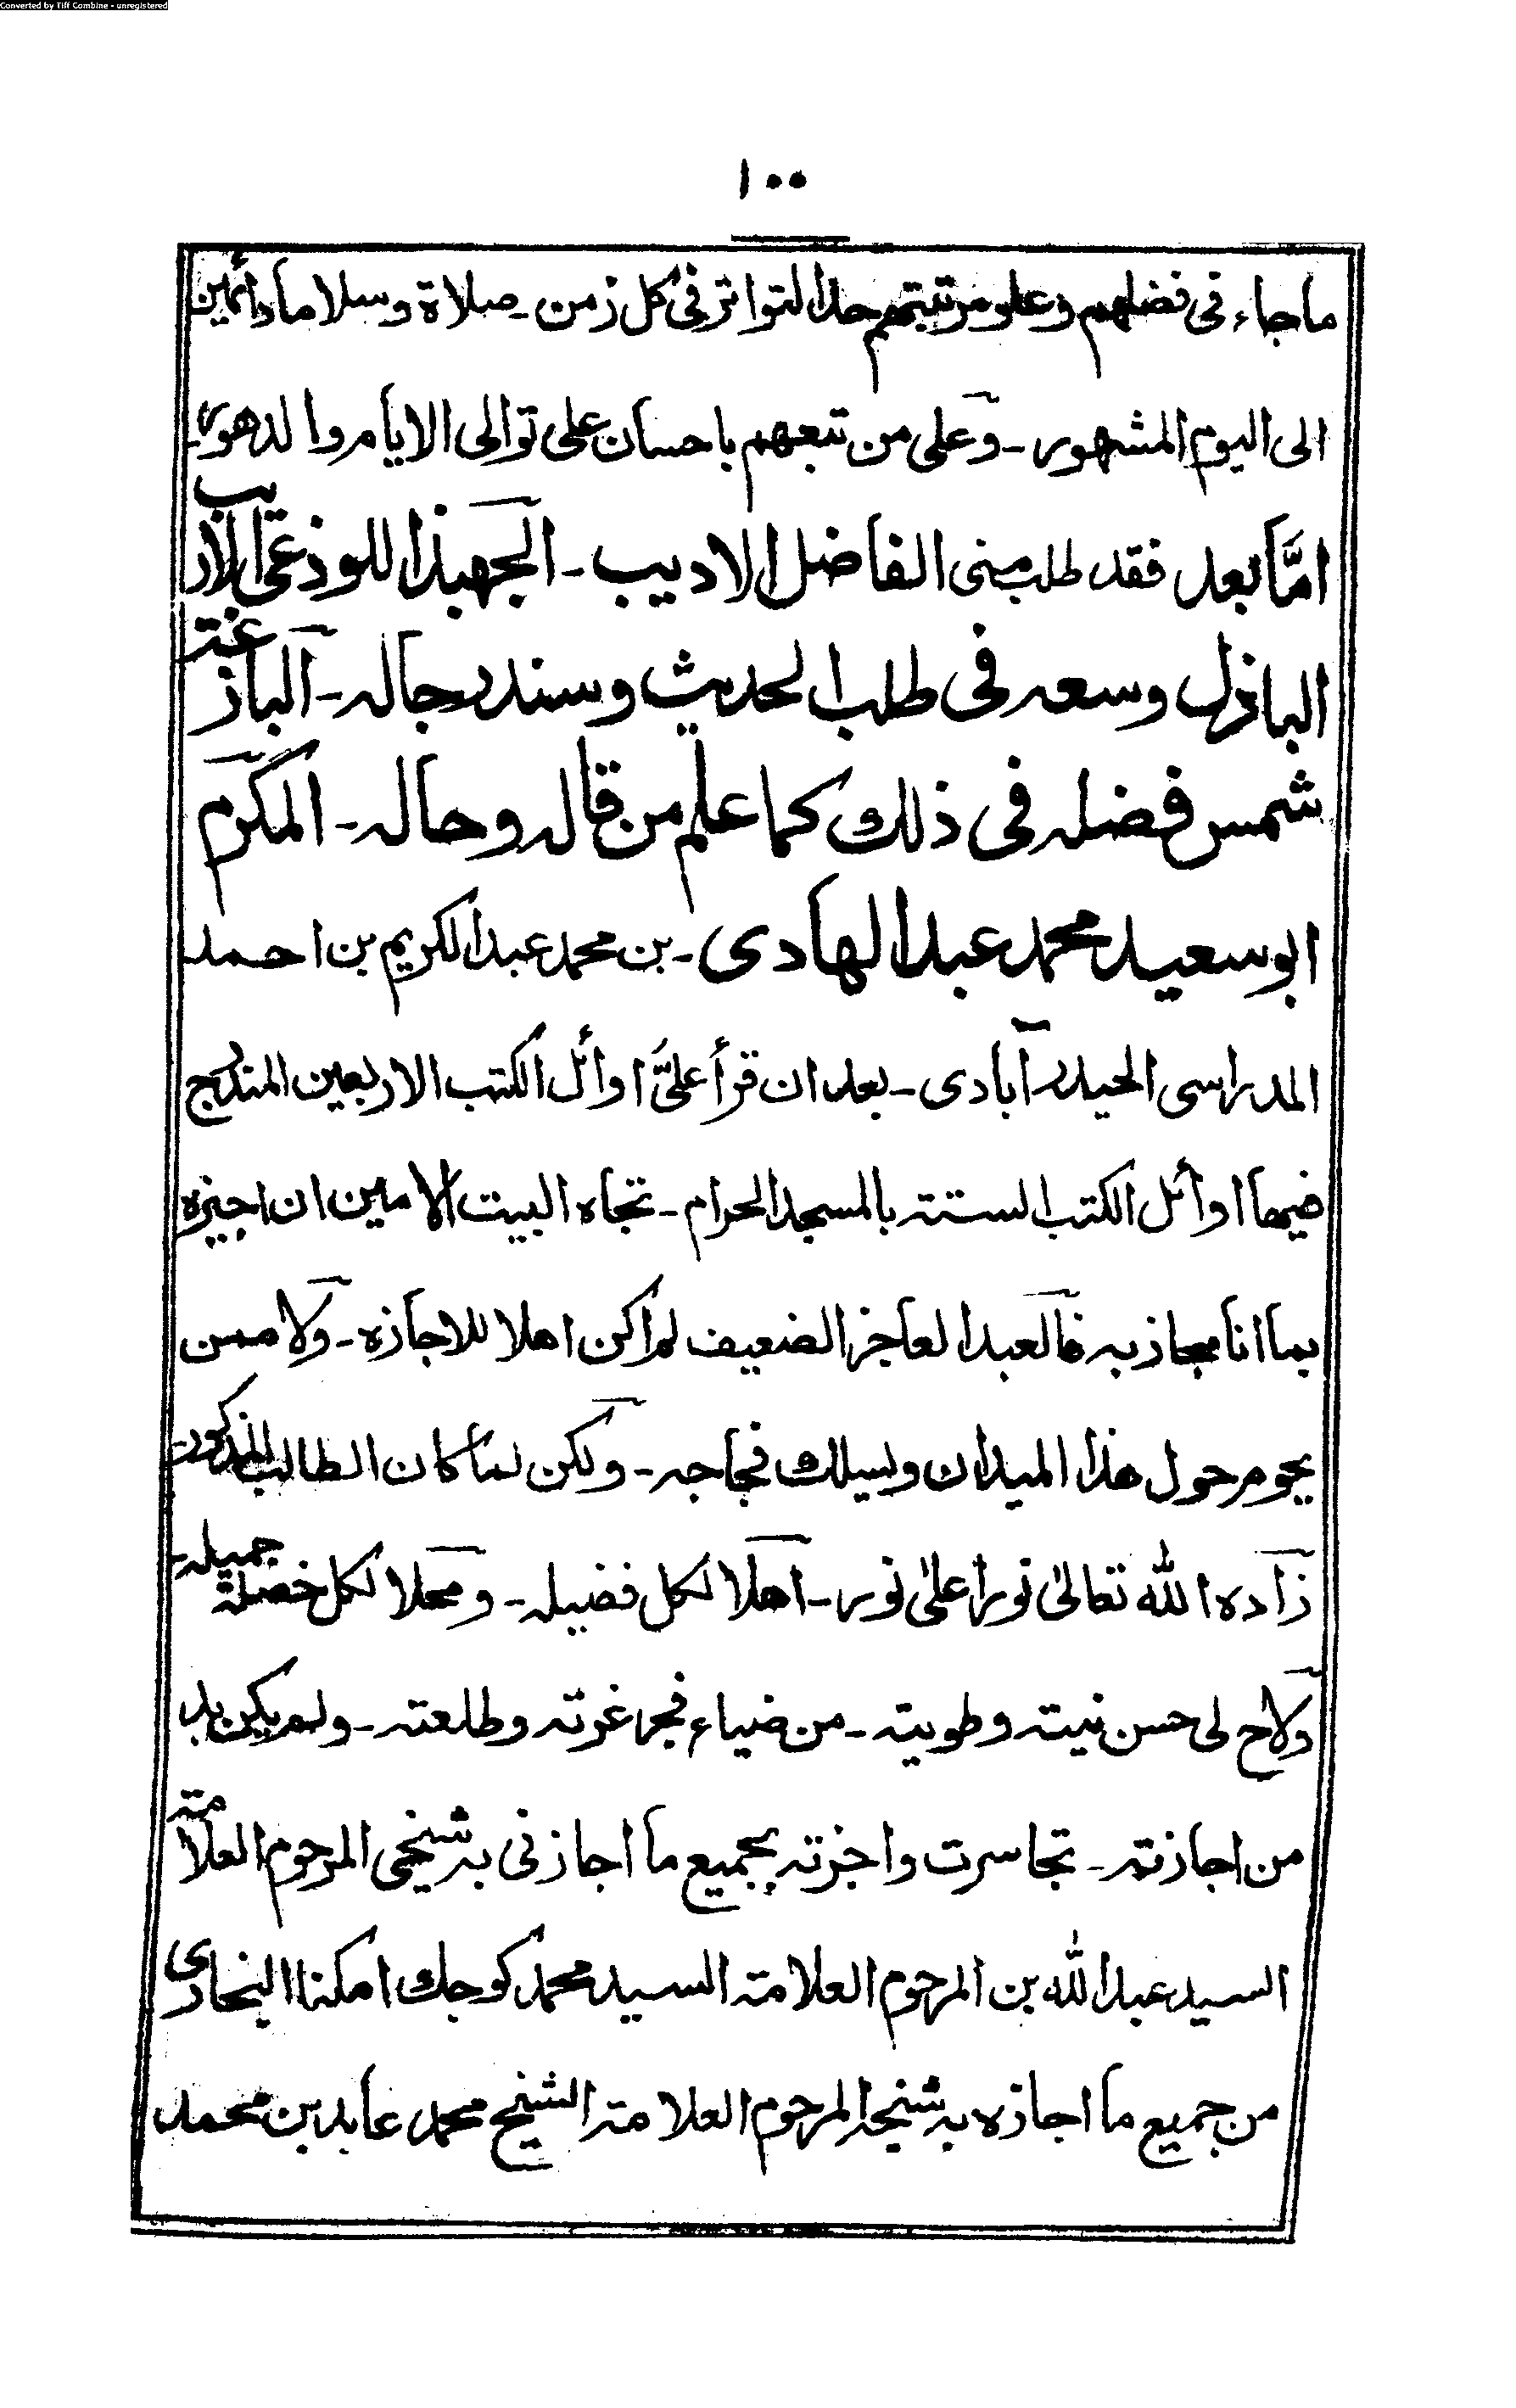 Converted by Tiff Combine - unregistered
١٠٠
ما جاء فى فضلهم وعلو مرتبتهم حد التواتر فى كل زمن - صلاة وسلاما دائمين
الى اليوم المشهور - وعلى من تبعهم باحسان على توالى الايام والدهور -
امَّا بعد فقد طلب منى الفاضل الاديب - الجهبذ اللوذعى الاريب
الباذل وسعه فى طلب الحديث وسند رجاله - البازغة
شمس فضله فى ذلك كما علم من قاله وحاله - المكرم
ابو سعيد محمد عبد الهادى - بن محمد عبد الكريم بن احمد
المدراسى الحيدر آبادى - بعد ان قرأ علىَّ اوائل الكتب الاربعين المندرج
فيها اوائل الكتب الستة بالمسجد الحرام - تجاه البيت الامين ان اجيزه
بما انا مجاز به فالعبد العاجز الضعيف لم اكن اهلا للاجازه - ولا ممن
يحوم حول هذا الميدان ويسلك فجاجه - ولكن لما كان الطالب المذكور -
زاده الله تعالىٰ نورا علىٰ نور - اهلا لكل فضيله - ومحلا لكل خصلة جميله -
ولاح لى حسن نيته وطويته - من ضياء فجر غرته وطلعته - ولم يكن بد
من اجازته - تجاسرت واجزته بجميع ما اجازنى به شيخى المرحوم العلامة
السيد عبد الله بن المرحوم العلامة السيد محمد كوجك امكنا البخارى
من جميع ما اجازه به شيخه المرحوم العلامة الشيخ محمد عابد بن محمد